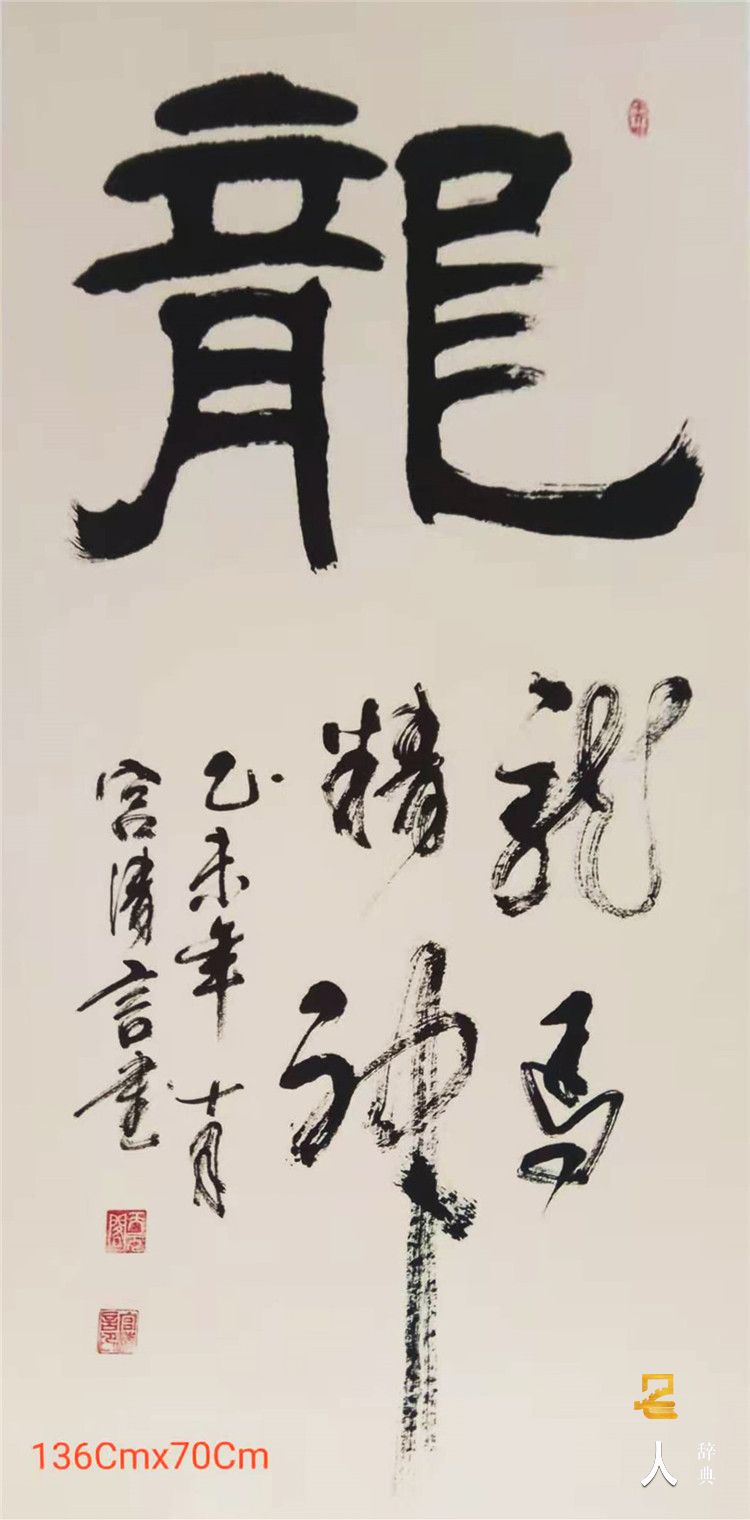 龍
龍马
精神
乙未年十月
宫清言书
136Cmx70Cm
名
人
辞典